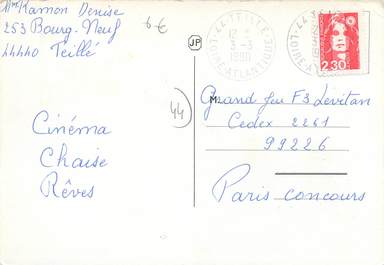 Mme Ramon Denise
253 Bourg-Neuf
44440 Teillé
6 €
JP
44 TEILLE
3-3
1990
LOIRE-ATLANTIQUE
2,30
44
M
Cinéma
Chaise
Rêves
Grand jeu F3 Levitan
Cedex 2261
99226
Paris concours